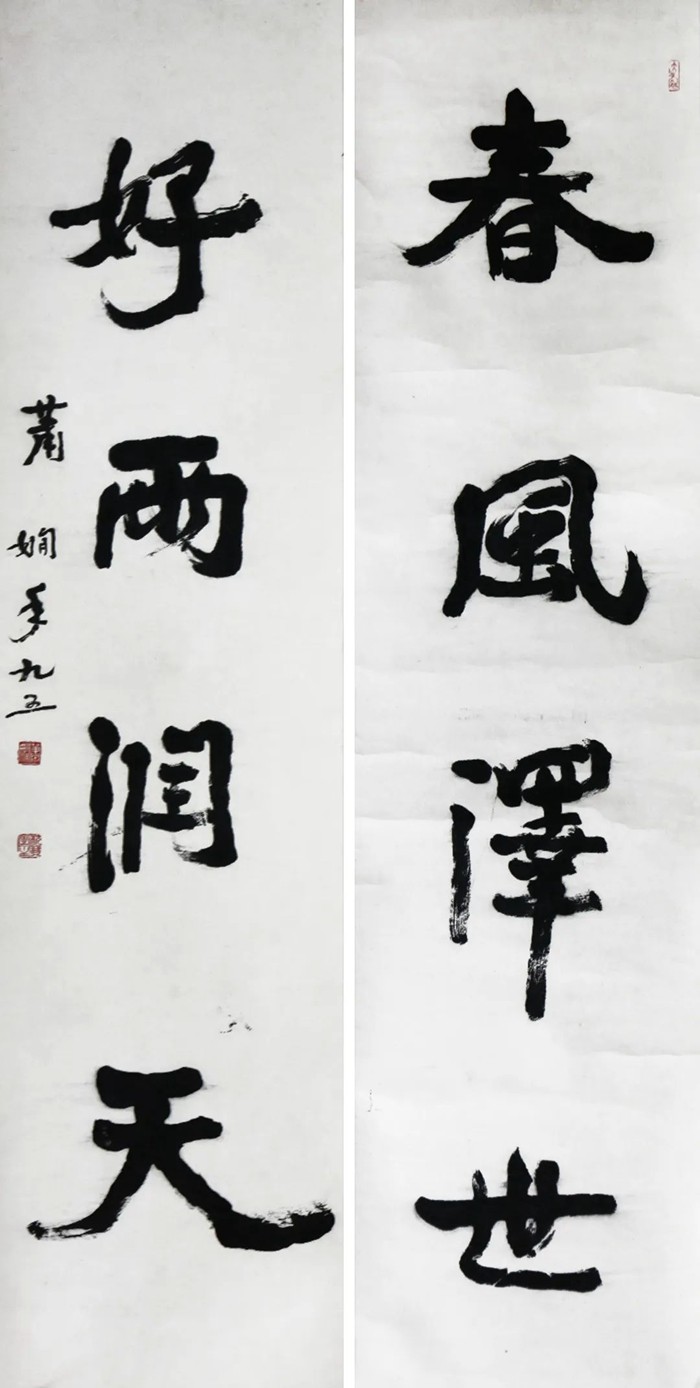 春風澤世
好雨润天
蕭嫻年九五